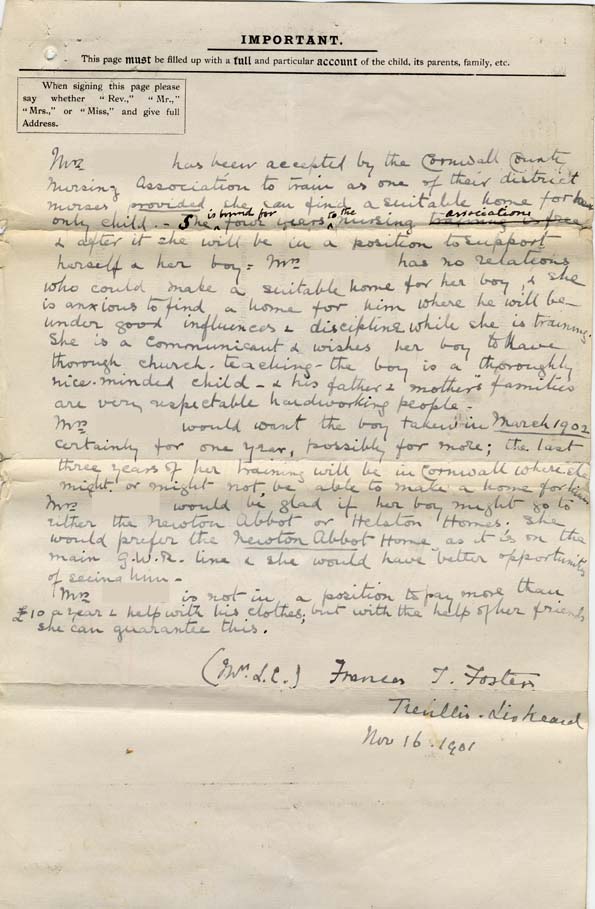 IMPORTANT.
This page must be filled up with a full and particular account of the child, its parents, family, etc.
When signing this page please
say whether "Rev.," "Mr.,"
"Mrs.," or "Miss," and give full
Address.
Mrs has been accepted by the Cornwall County
Nursing Association to train as one of their district
nurses provided she can find a suitable home for her
only child. - She is bound for four years to the nursing associations
& after it she will be in a position to support
herself & her boy = Mrs has no relations
who could make a suitable home for her boy, & she
is anxious to find a home for him where he will be
under good influences & discipline while she is training.
She is a communicant & wishes her boy to have
thorough church-teaching - the boy is a thoroughly
nice-minded child - & his father & mother's families
are very respectable hardworking people -
Mrs would want the boy taken in March 1902
certainly for one year, possibly for more; the last
three years of her training will be in Cornwall where she
might, or might not, be able to make a home for him
Mrs would be glad if her boy might go to
either the Newton Abbot or Helston Homes. She
would prefer the Newton Abbot Home as it is on the
main G.W.R. line & she would have better opportunities
of seeing him -
Mrs is not in a position to pay more than
£10 a year & help with his clothes, but with the help of her friends
she can guarantee this.
Frances T. Foster
Trevillis - Liskeard
Nov 16 - 1901